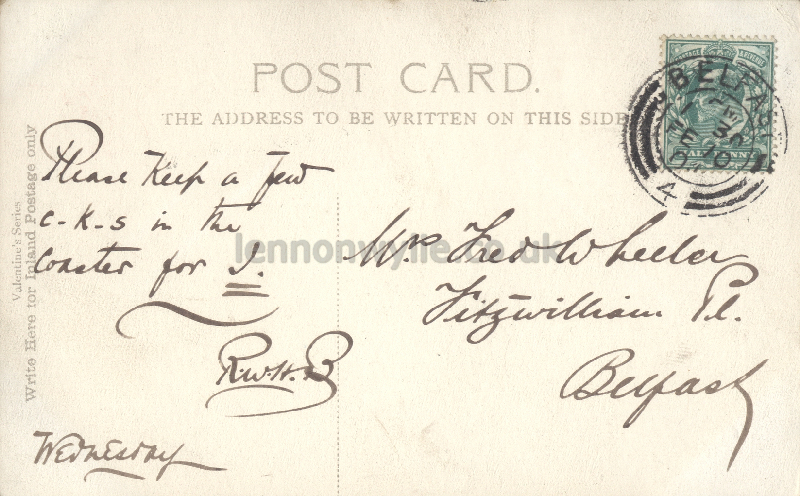 POST CARD.
THE ADDRESS TO BE WRITTEN ON THIS SIDE
Valentine's Series
Write Here for Inland Postage only
Please Keep a few
c-k-s in the
Coaster for I.
R.W.H.B
Wednesday
Mrs Fred Wheeler
Fitzwilliam Pl.
Belfast
BELFAST
4
lennonwylie.co.uk